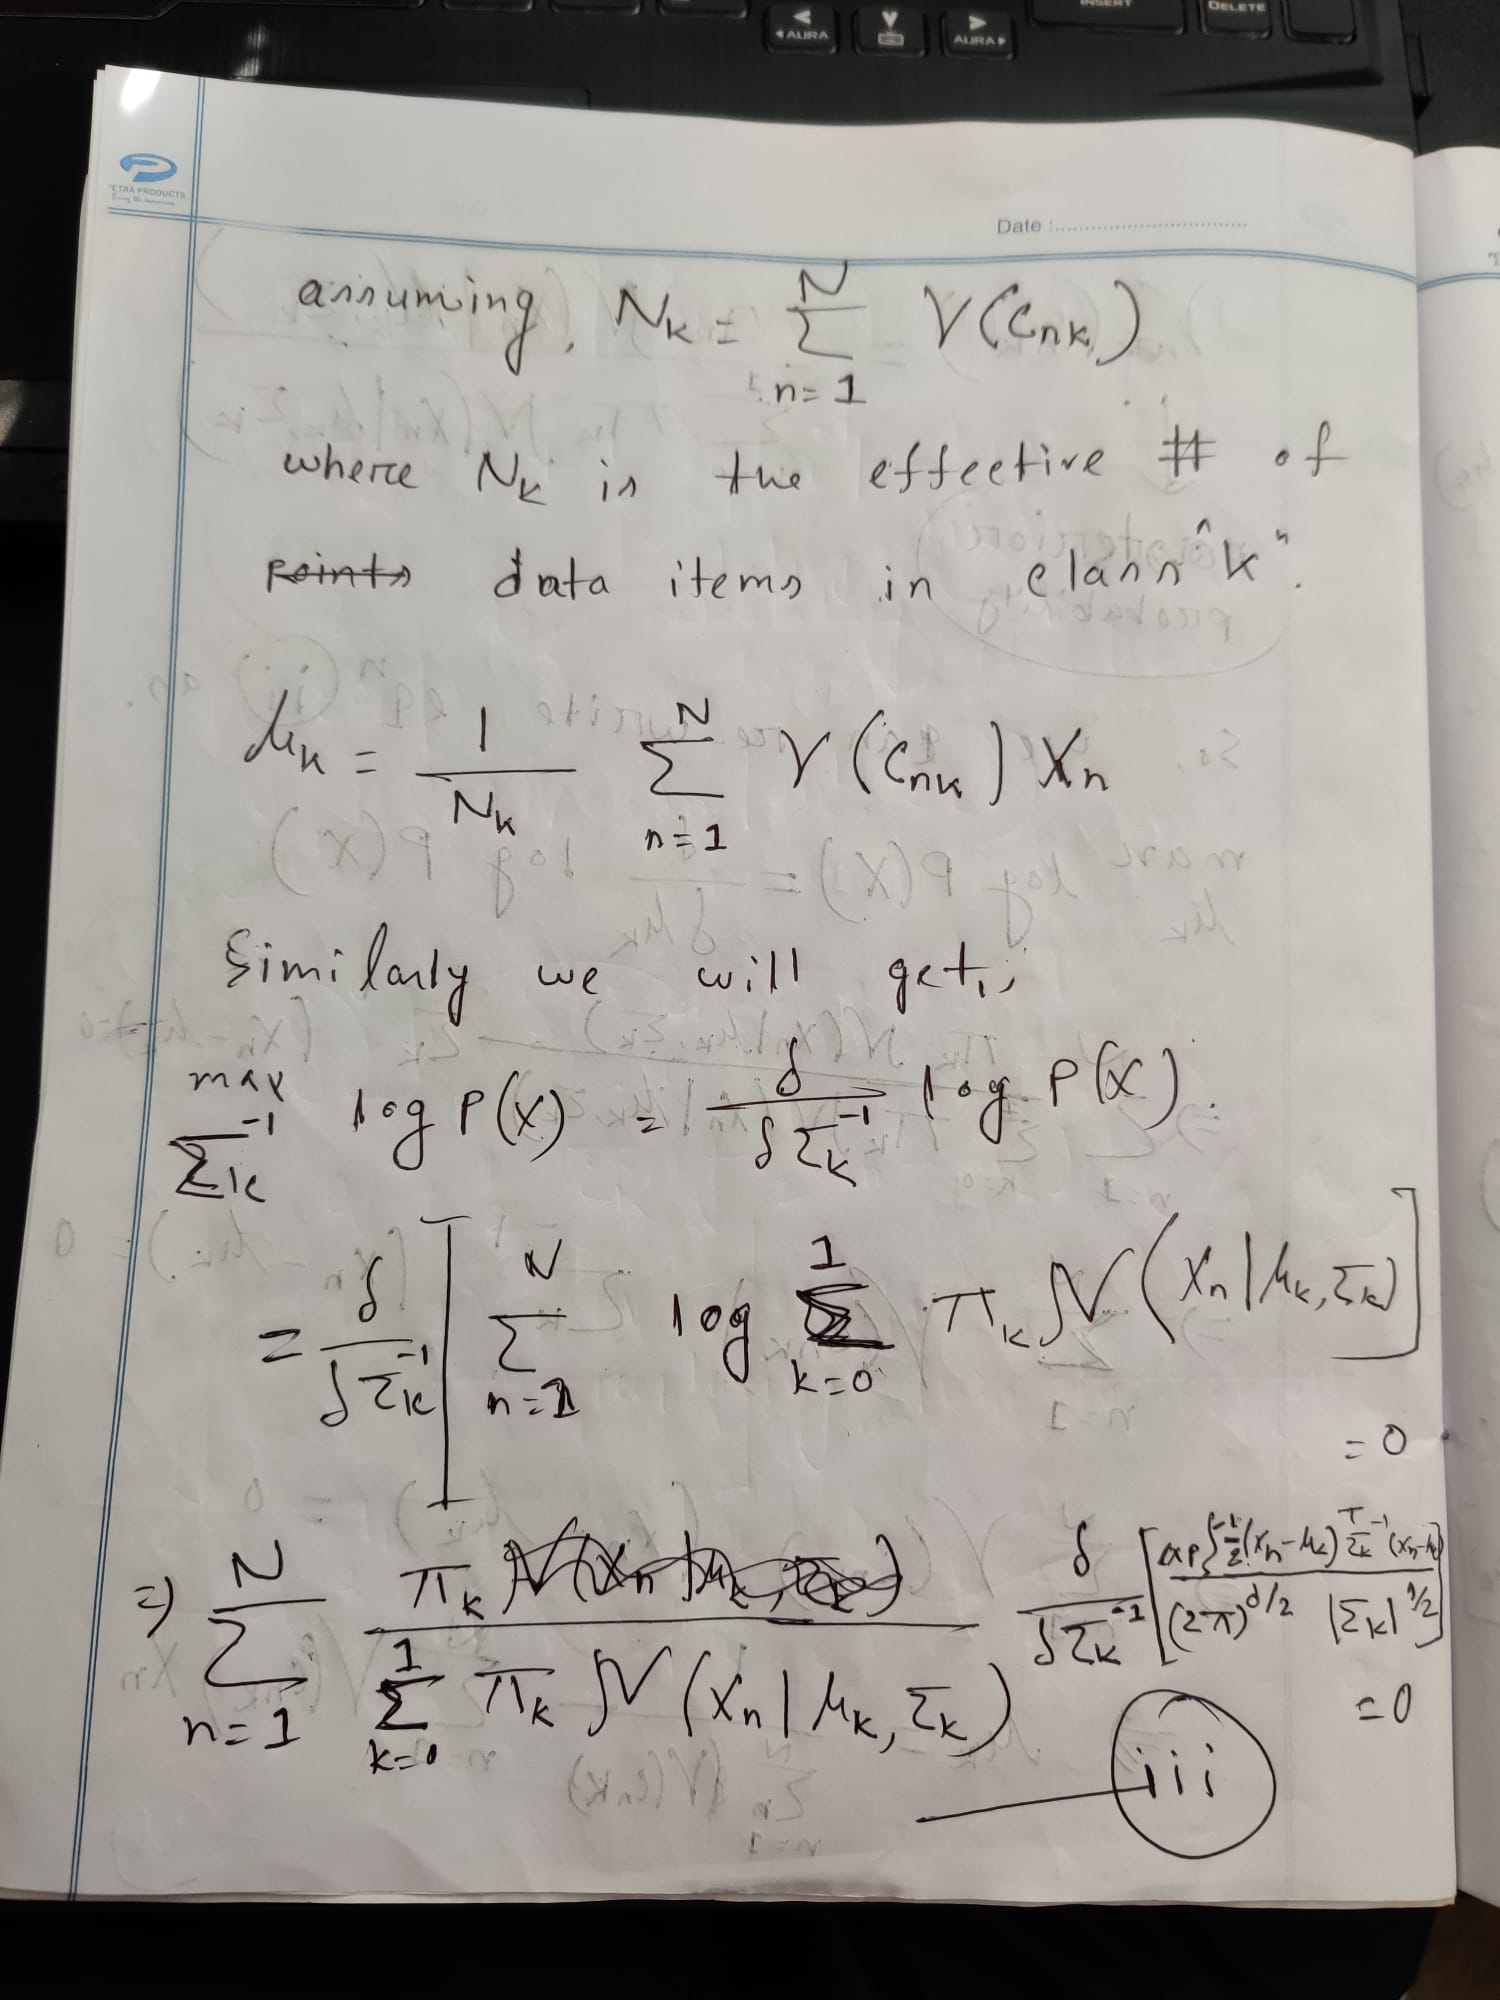 AURA
AURA
INSERT
DELETE
ETRA PRODUCTS
Date :
assuming, N_k = Σ_{n=1}^{N} γ(C_{nk})
where N_k is the effective # of
points data items in class "k".
μ_k = 1/N_k Σ_{n=1}^{N} γ(C_{nk}) X_n
Similarly we will get,
max_{Σ_k^{-1}} log P(X) = δ/δΣ_k^{-1} log P(X).
= δ/δΣ_k^{-1} [ Σ_{n=1}^{N} log Σ_{k=0}^{1} π_k N(X_n | μ_k, Σ_k) ]
= 0
=> Σ_{n=1}^{N} π_k / Σ_{k=0}^{1} π_k N(X_n | μ_k, Σ_k) δ/δΣ_k^{-1} [ exp{-1/2 (X_n - μ_k)^T Σ_k^{-1} (X_n - μ_k) / (2π)^{d/2} |Σ_k|^{1/2} ]
= 0
iii